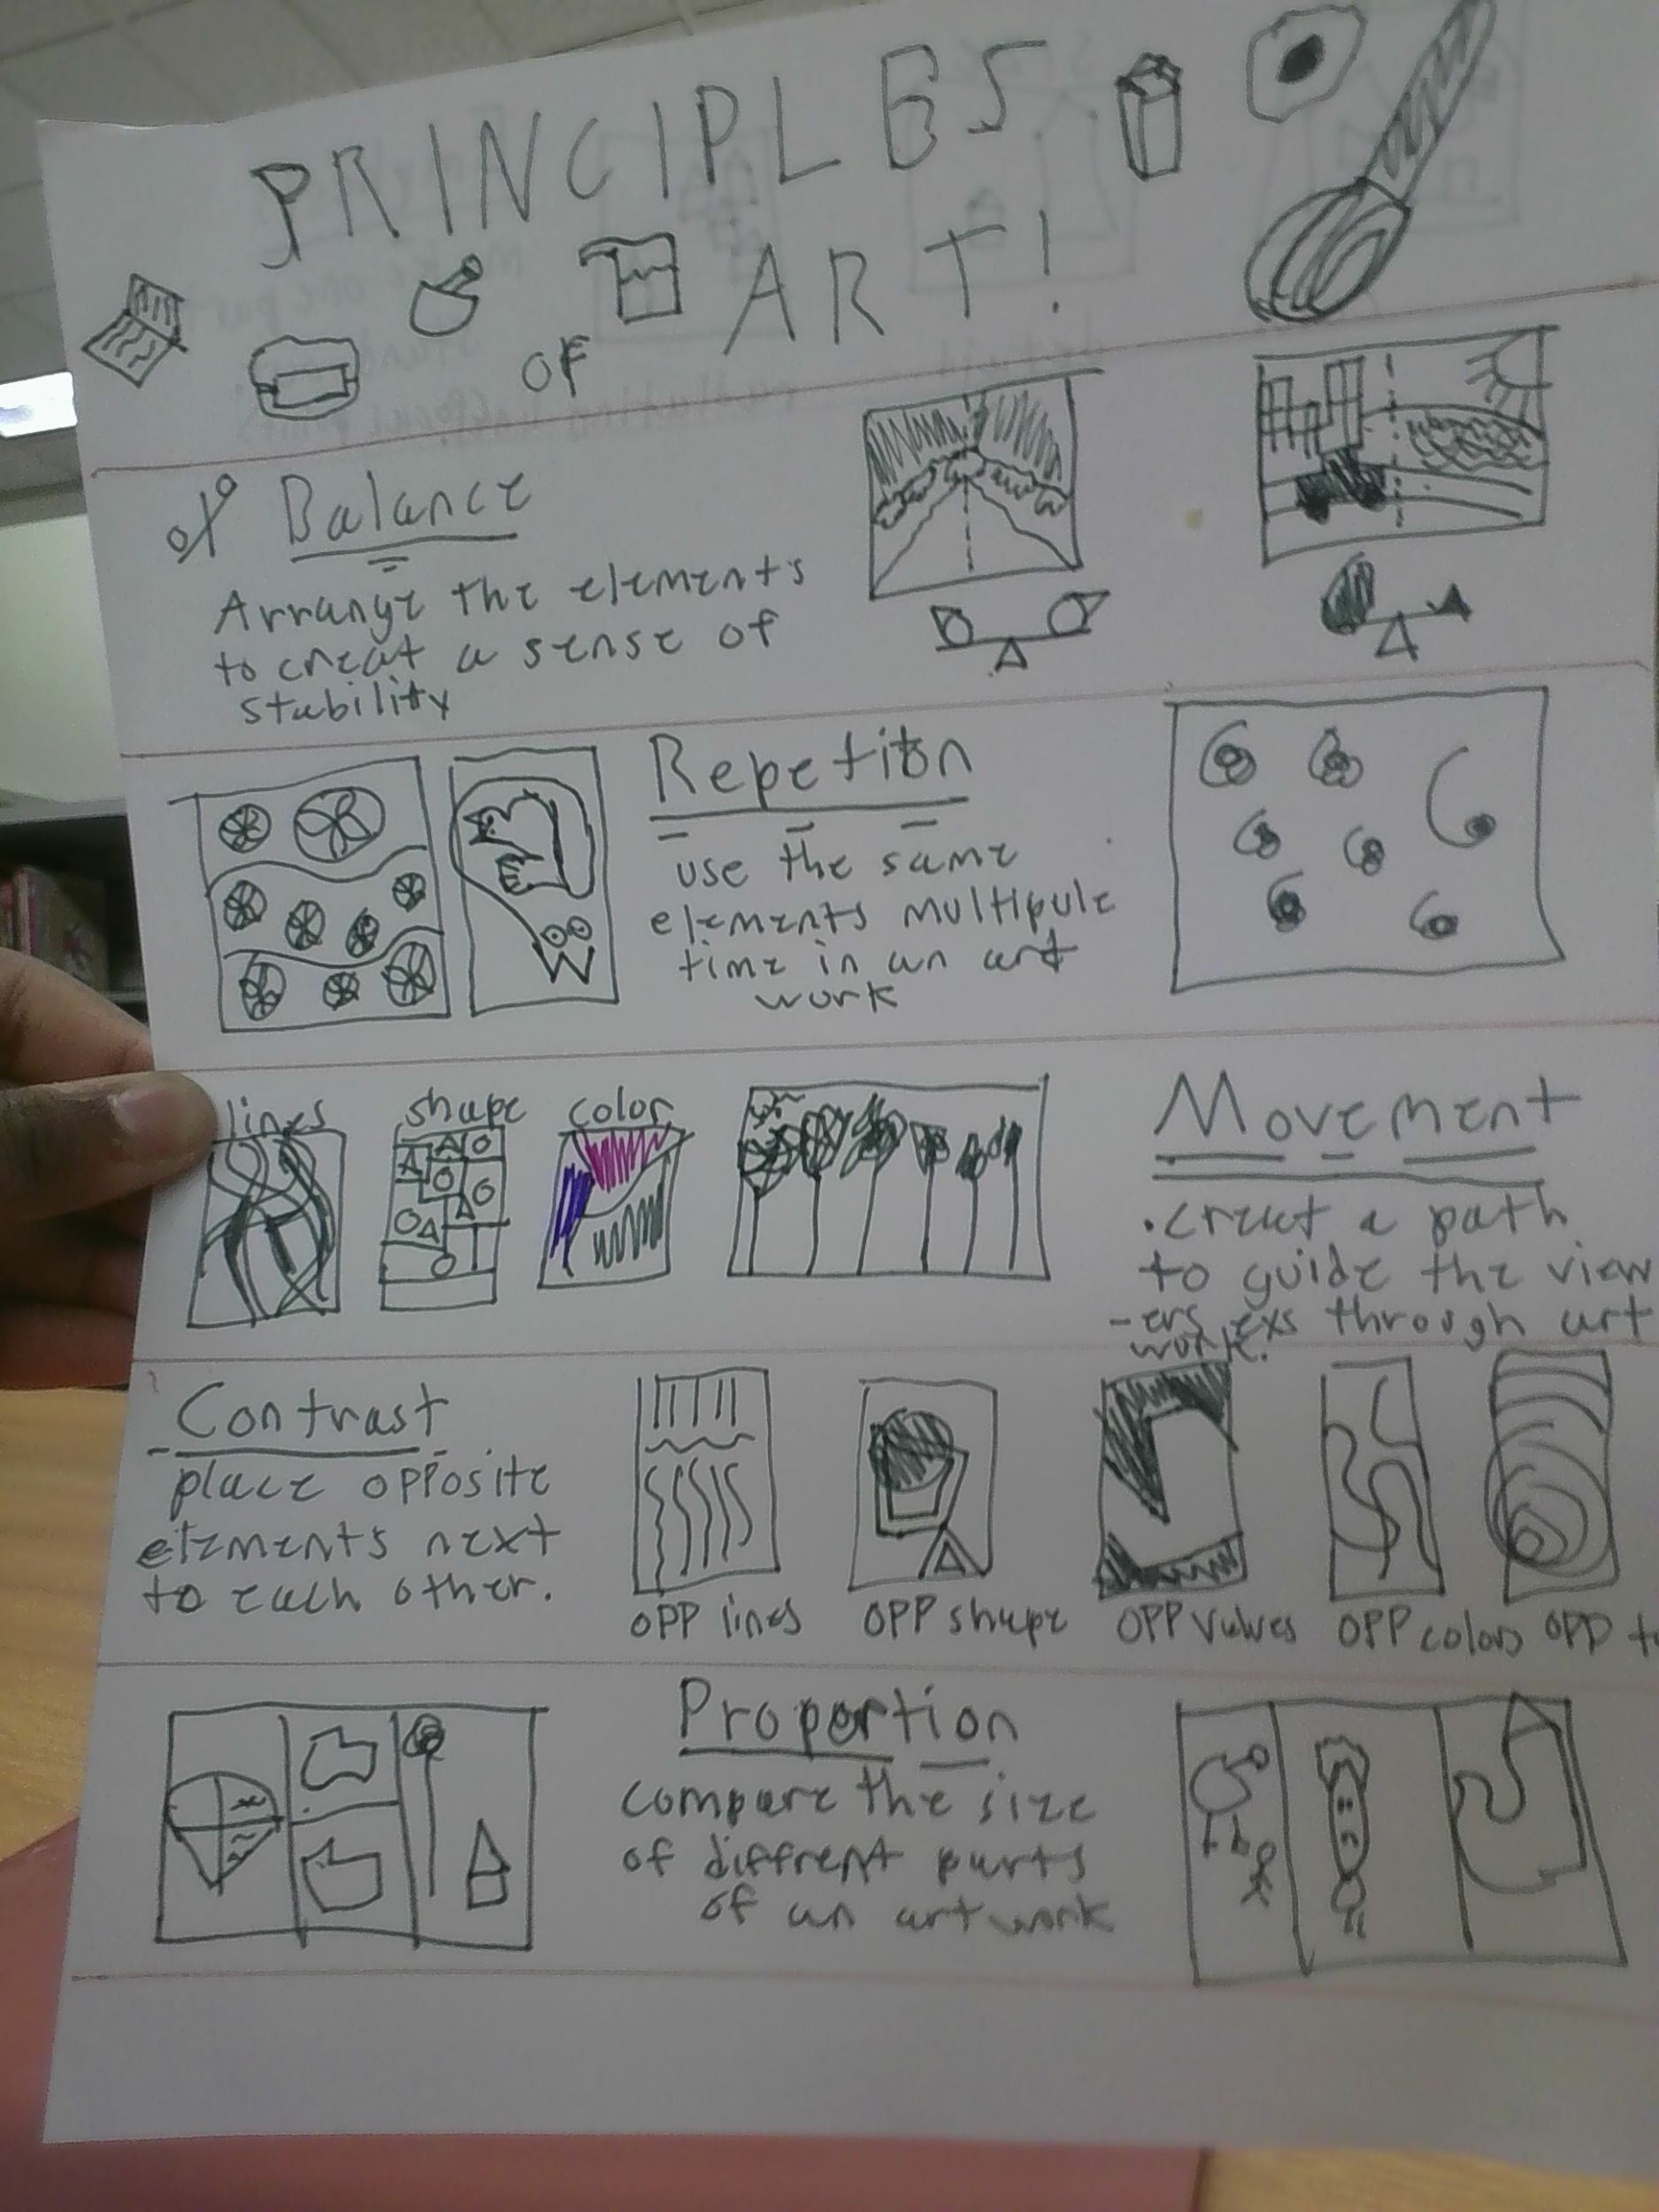 PRINCIPLES
OF ART!
of Balance
Arrange the elements
to creat a sense of
stability
Repetition
use the same
elements multipule
time in an art
work
lines shape color
Movement
.creat a path
to guide the view
-ers exs through art
work.
Contrast
place opposite
elements next
to each other.
OPP lines OPP shape OPP values OPP colors OPP
Proportion
compare the size
of diffrent parts
of an art work